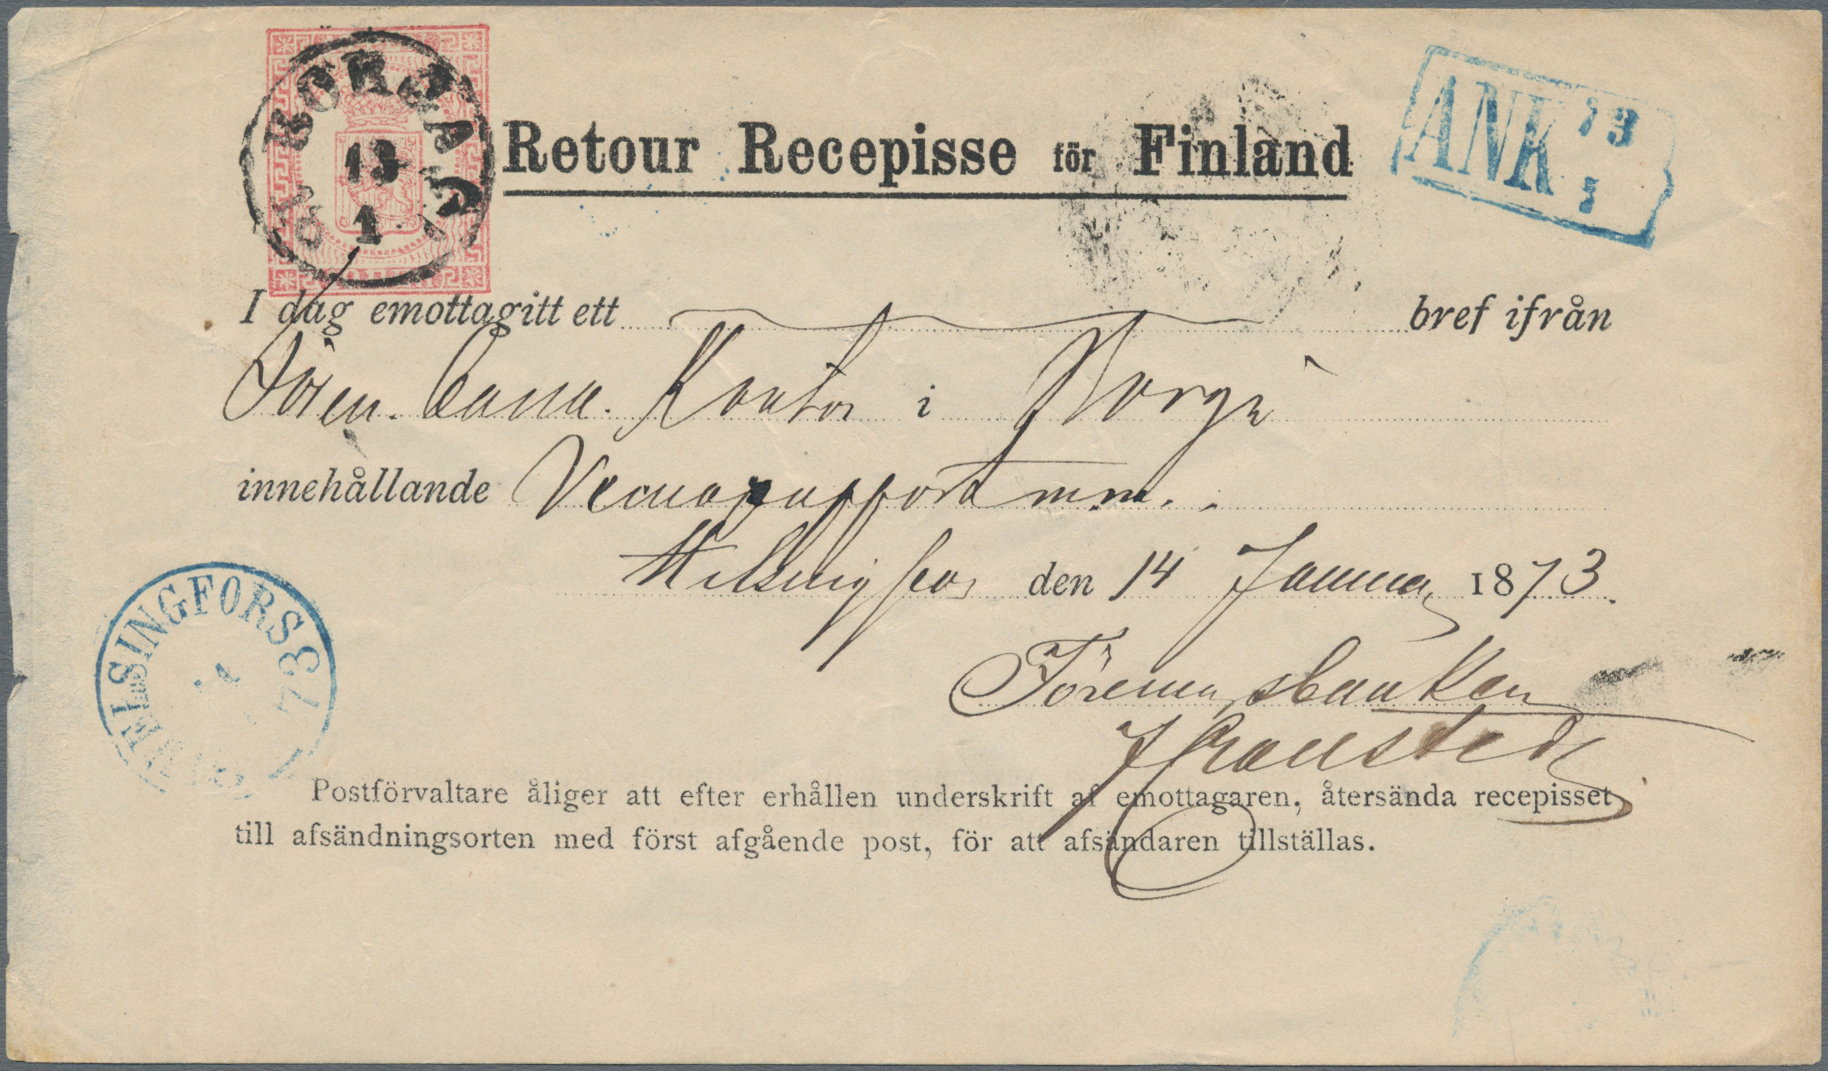 BORGÅ
13
1
Retour Recepisse för Finland
ANK 13
1
I dag emottagitt ett bref ifrån
Fören. Banks Kontor i Borgå
innehållande m.m.
Helsingfors den 14 Januari 1873.
HELSINGFORS
Föreningsbanken
Postförvaltare åliger att efter erhållen underskrift af emottagaren, återsända recepisset
till afsändningsorten med först afgående post, för att afsändaren tillställas.